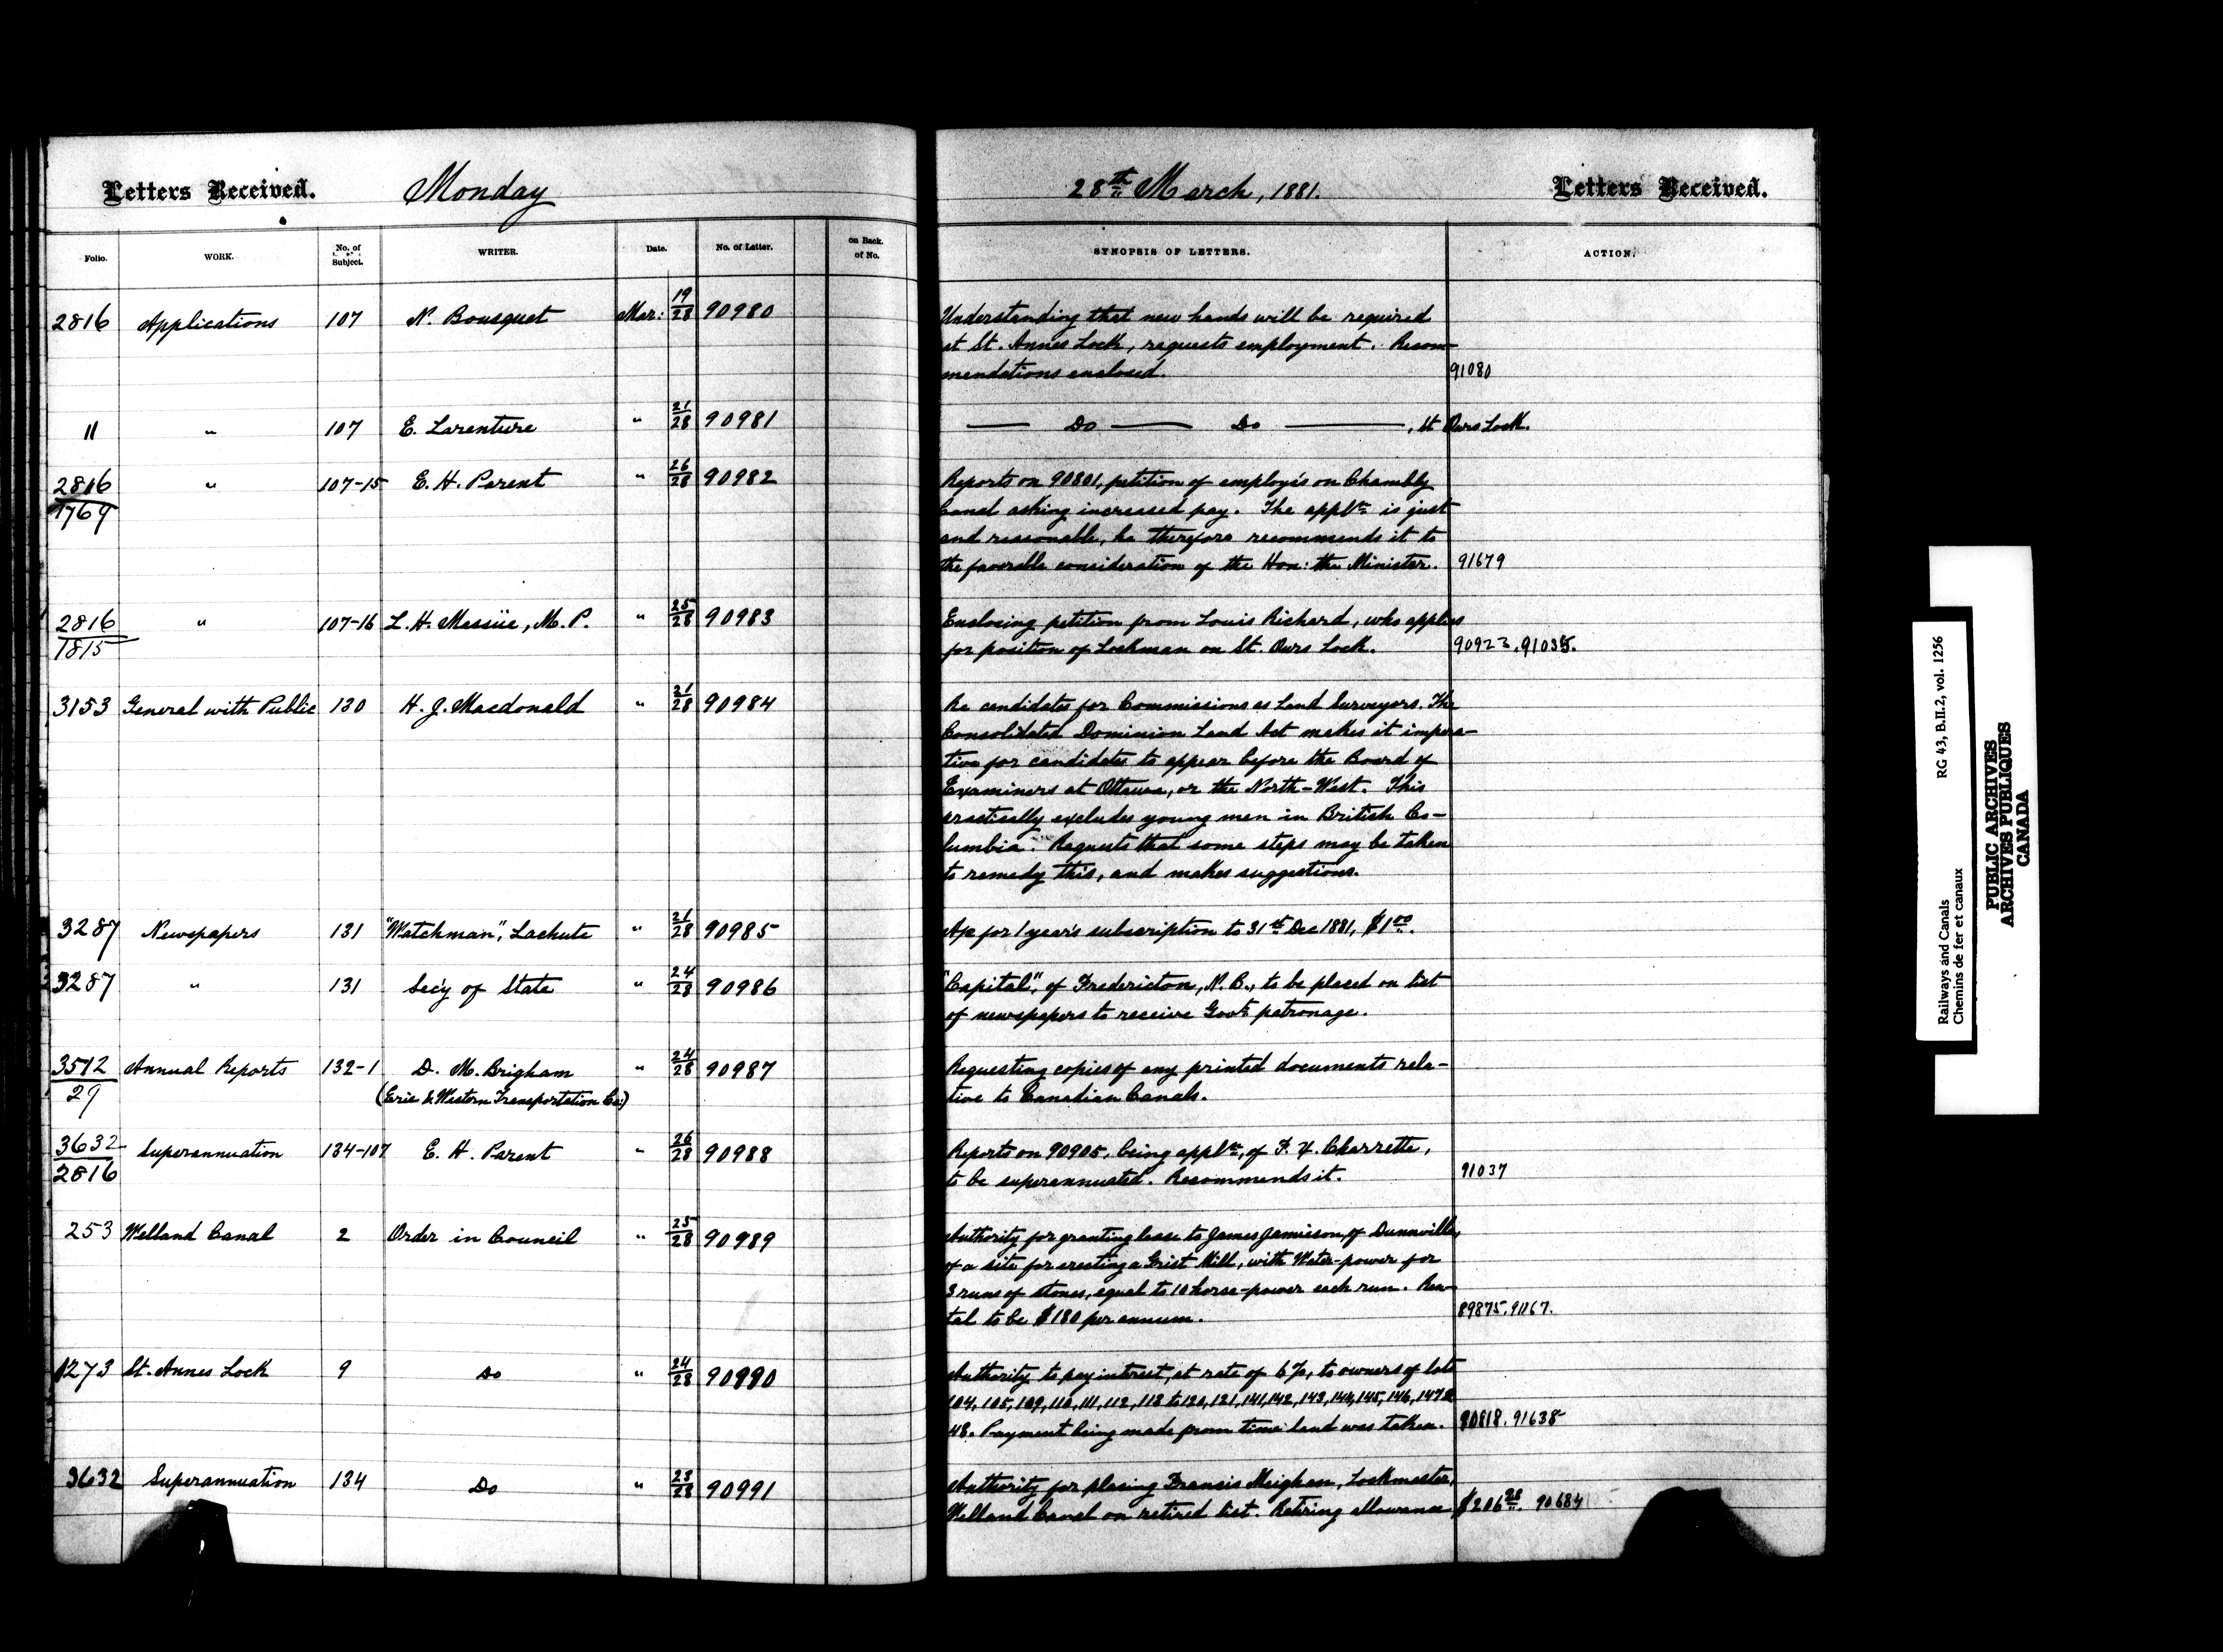 Letters Received. Monday 28th March, 1881. Letters Received.
Folio. WORK. No. of Subject. WRITER. Date. No. of Letter. on Back. of No. SYNOPSIS OF LETTERS. ACTION.
2816 Applications 107 N. Bousquet Mar: 19/28 90980 Understanding that new hands will be required
at St. Annes Lock, requests employment. Recom-
mendations enclosed. 91080
11 " 107 E. Larenture " 21/28 90981 — Do — Do —, St Ours Lock.
2816/1769 " 107-15 E. H. Parent " 26/28 90982 Reports on 90801, petition of employés on Chambly
Canal asking increased pay. The applⁿ is just
and reasonable, he therefore recommends it to
the favorable consideration of the Hon: the Minister. 91679
2816/1815 " 107-16 L. H. Massüe, M. P. " 25/28 90983 Enclosing petition from Louis Richard, who applies
for position of Lockman on St. Ours Lock. 90923. 91035.
3153 General with Public 130 H. J. Macdonald " 21/28 90984 Re candidates for Commissions as Land Surveyors. The
Consolidated Dominion Land Act makes it impera-
tive for candidates to appear before the Board of
Examiners at Ottawa, or the North-West. This
practically excludes young men in British Co-
lumbia. Requests that some steps may be taken
to remedy this, and makes suggestions.
3287 Newspapers 131 "Watchman", Lachute " 21/28 90985 A/c for 1 year's subscription to 31st Dec 1881, $1.00.
3287 " 131 Sec'y of State " 24/28 90986 "Capital", of Fredericton, N. B., to be placed on list
of newspapers to receive Govt patronage.
3512/29 Annual Reports 132-1 D. M. Brigham " 24/28 90987 Requesting copies of any printed documents rela-
(Erie & Western Transportation Co:) tive to Canadian Canals.
3632/2816 Superannuation 134-107 E. H. Parent " 26/28 90988 Reports on 90905, being applⁿ, of F. X. Charrette,
to be superannuated. Recommends it. 91037
253 Welland Canal 2 Order in Council " 25/28 90989 Authority for granting lease to James Jamieson of Dunnville,
of a site for erecting a Grist Mill, with Water-power for
3 runs of stones, equal to 10 horse-power each run. Ren-
tal to be $180 per annum. 89875. 91167.
1273 St. Annes Lock 9 Do " 24/28 90990 Authority to pay interest, at rate of 6%, to owners of lots
104, 105, 109, 110, 111, 112, 113 to 120, 121, 141, 142, 143, 144, 145, 146, 147 &
48. Payment being made from time land was taken. 90818. 91638
3632 Superannuation 134 Do " 23/28 90991 Authority for placing Francis Meighan, Lockmaster,
Welland Canal on retired list. Retiring allowance, $206.28. 90684
Railways and Canals RG 43, B.II.2, vol. 1256
Chemins de fer et canaux
PUBLIC ARCHIVES
ARCHIVES PUBLIQUES
CANADA